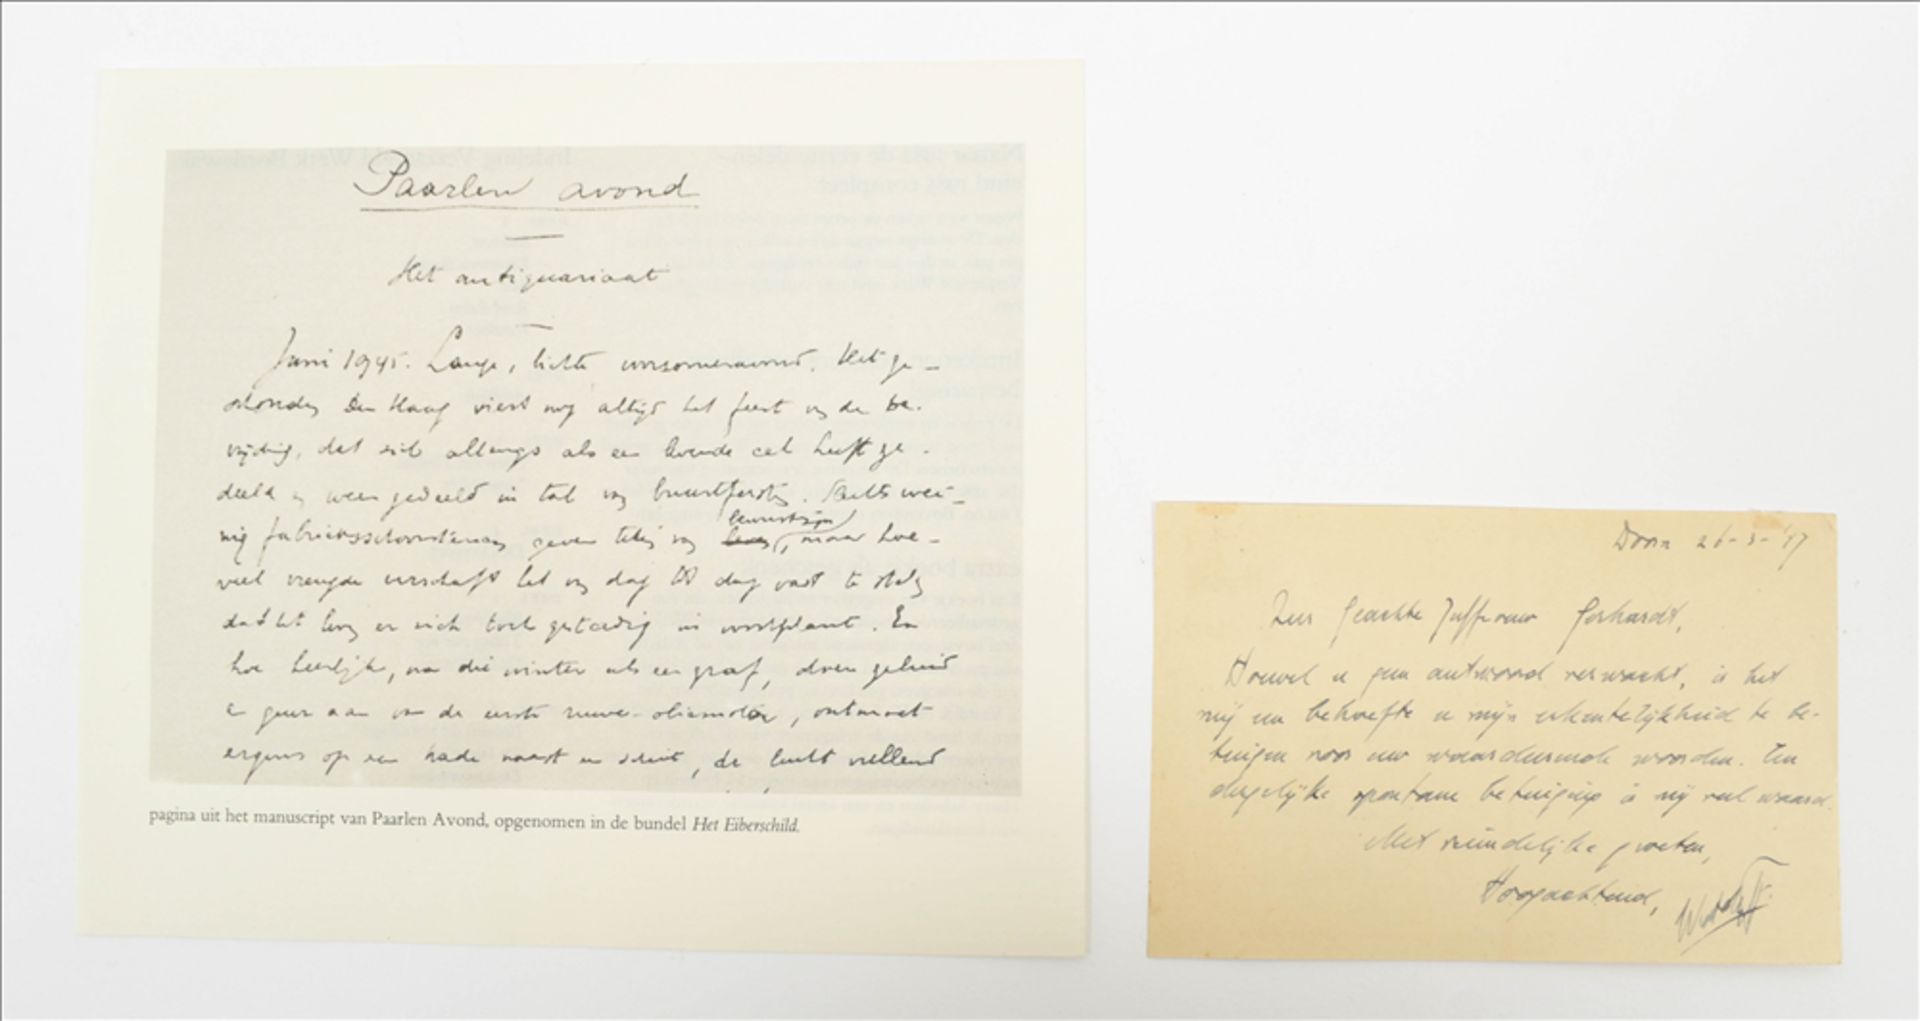 Paarlen avond
Het antiquariaat
Juni 1945. Lange, lichte voorzomeravond. Het ge-
schonden Den Haag viert nog altijd het feest van de be-
vrijding, dat zich allengs als een levende cel heeft ge-
deeld en weer gedeeld in tal van buurtfeesten. Slechts wei-
bewustzijn
nig fabrieksschoorsteenen geven teeken van leven, maar hoe-
veel vreugde verschaft het van dag tot dag vast te stellen
dat het leven er zich toch gestadig in voortplant. En
hoe heerlijk, na die winter als een graf, door geluid
en geur aan van de eerste ruwe-oliemotor, ontmoet
ergens op een kade naast een schuit, de lucht vullend
pagina uit het manuscript van Paarlen Avond, opgenomen in de bundel Het Eiberschild.
Doorn 26-3-'47
Zeer Geachte Juffrouw Gerhardt,
Hoewel u geen antwoord verwacht, is het
mij een behoefte u mijn erkentelijkheid te be-
tuigen voor uw waardeerende woorden. Een
dergelijke spontane betuiging is mij veel waard.
Met vriendelijke groeten,
Hoogachtend,